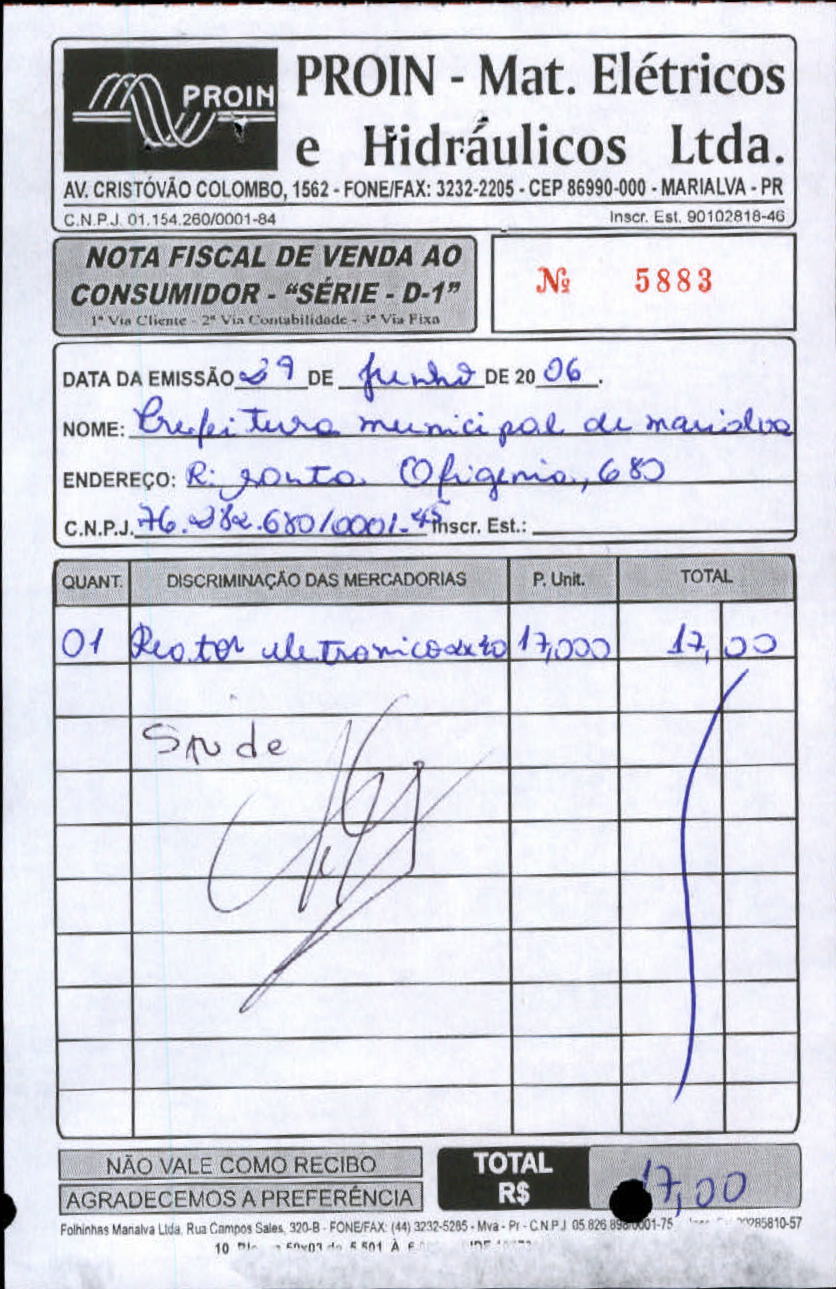 PROIN
PROIN - Mat. Elétricos
e Hidráulicos Ltda.
AV. CRISTÓVÃO COLOMBO, 1562 - FONE/FAX: 3232-2205 - CEP 86990-000 - MARIALVA - PR
C.N.P.J. 01.154.260/0001-84 Inscr. Est. 90102818-46
NOTA FISCAL DE VENDA AO
CONSUMIDOR - "SÉRIE - D-1"
1ª Via Cliente - 2ª Via Contabilidade - 3ª Via Fixa
Nº 5883
DATA DA EMISSÃO 29 DE Junho DE 20 06.
NOME: Prefeitura municipal de marialva
ENDEREÇO: R: santa Efigenia, 680
C.N.P.J. 76.282.680/0001-45 Inscr. Est.:
QUANT. DISCRIMINAÇÃO DAS MERCADORIAS P. Unit. TOTAL
01 Reator eletronico 17,000 17,00
Saude
NÃO VALE COMO RECIBO
AGRADECEMOS A PREFERÊNCIA
TOTAL
R$ 17,00
Folhinhas Marialva Ltda, Rua Campos Sales, 320-B - FONE/FAX: (44) 3232-5265 - Mva - Pr - C.N.P.J 05.826.898/0001-75